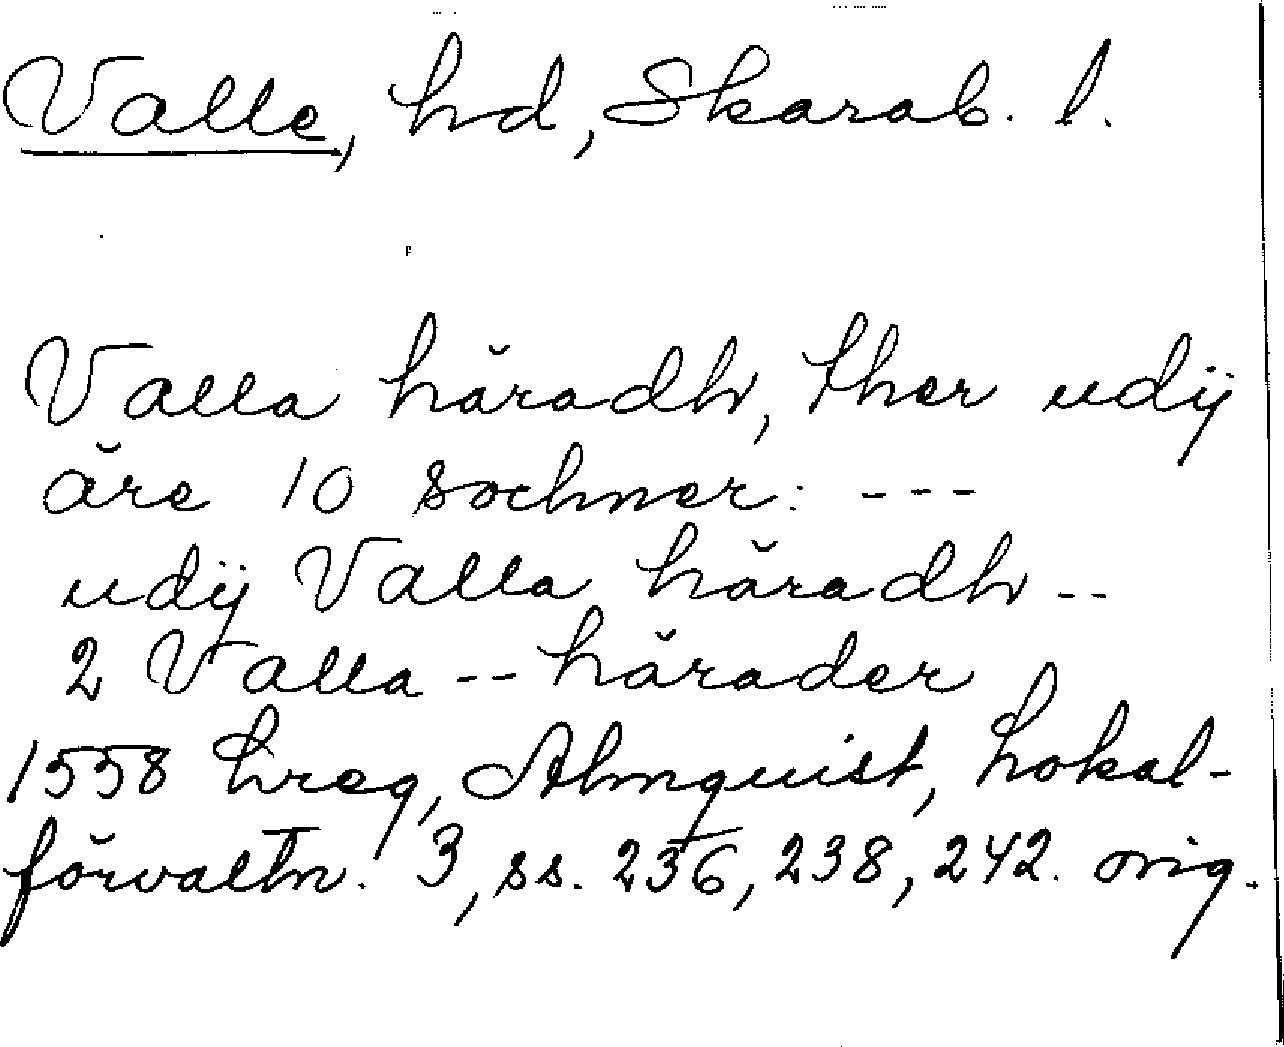 Valle, hd, Skarab. l.
Valla häradh, ther udij
äre 10 sochner: ---
udij Valla häradh --
2 Valla -- härader
1558 hreg, Almquist, Lokal-
förvaltn. 3, ss. 236, 238, 242. orig.